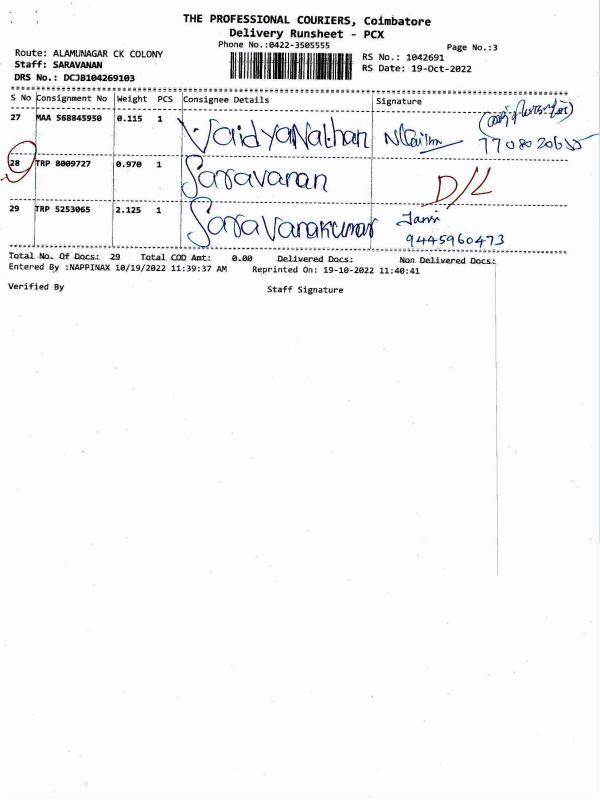 THE PROFESSIONAL COURIERS, Coimbatore
Delivery Runsheet - PCX
Phone No.:0422-3505555
Page No.:3
Route: ALAMUNAGAR CK COLONY
Staff: SARAVANAN
DRS No.: DCJB104269103
RS No.: 1042691
RS Date: 19-Oct-2022
S No Consignment No Weight PCS Consignee Details Signature
27 MAA 568845950 0.115 1 VaidyaNathan
28 TRP 8009727 0.970 1 Saravanan D/L
29 TRP 5253065 2.125 1 Saravanakumar Jansi
9445960473
Total No. Of Docs: 29 Total COD Amt: 0.00 Delivered Docs: Non Delivered Docs:
Entered By :NAPPINAX 10/19/2022 11:39:37 AM Reprinted On: 19-10-2022 11:40:41
Verified By Staff Signature